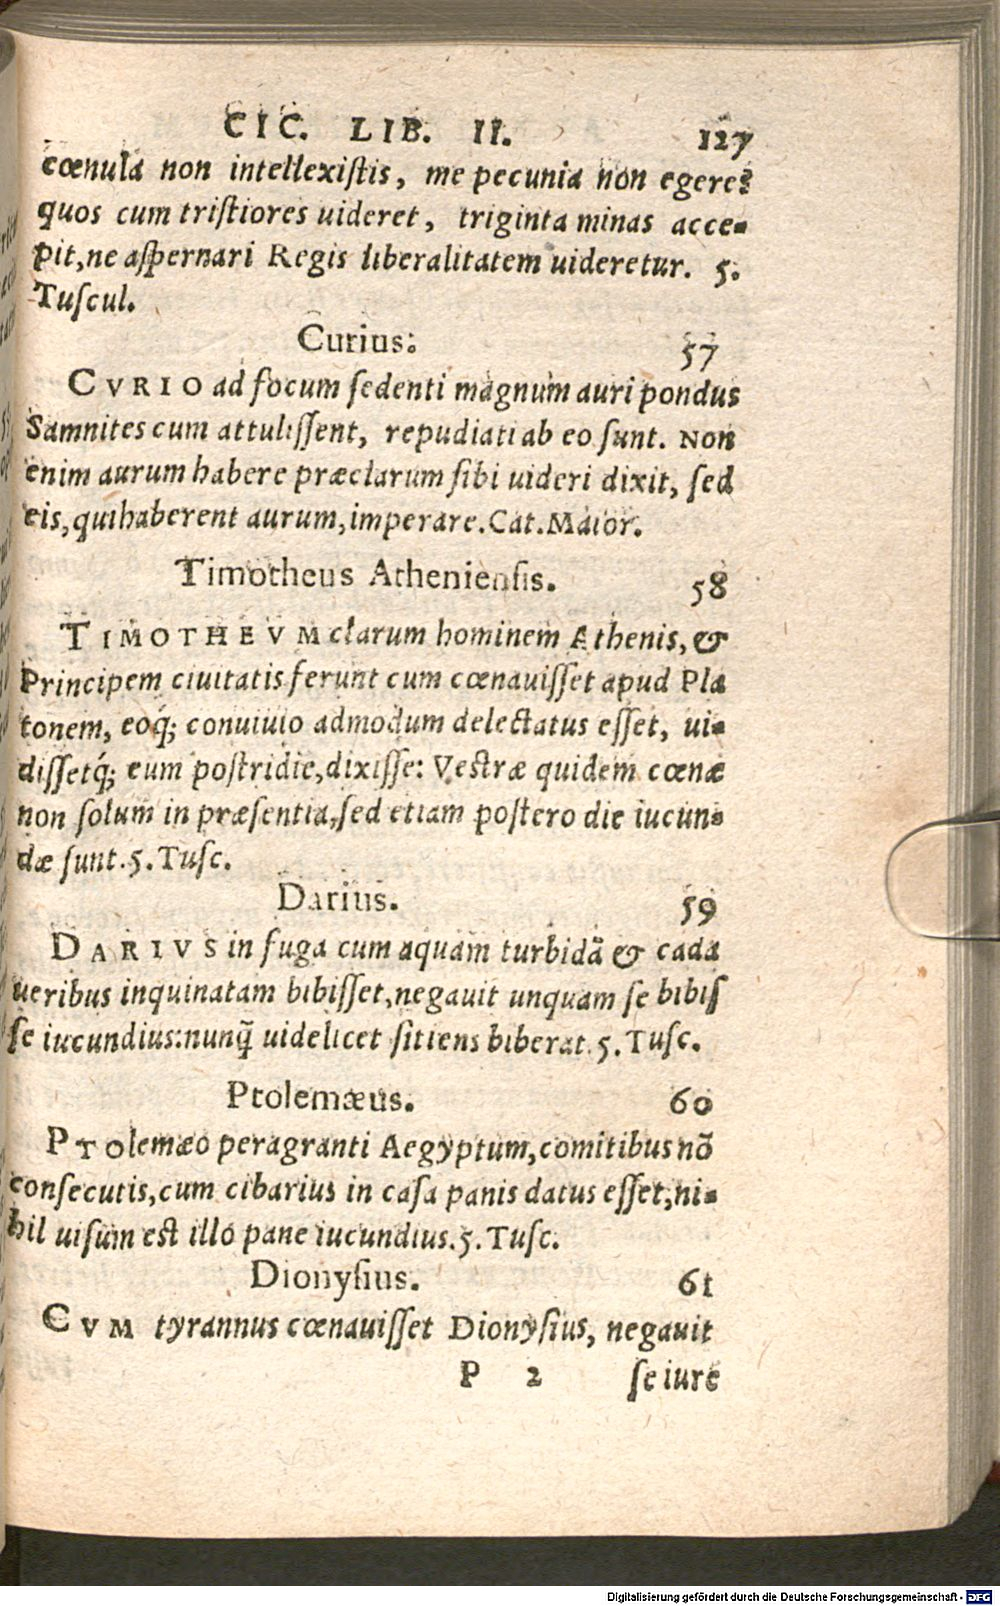 CIC. LIB. II. 127
cœnula non intellexiſtis, me pecunia non egere?
quos cum triſtiores uideret, triginta minas acce-
pit, ne aſpernari Regis liberalitatem uideretur. 5.
Tuſcul.
Curius. 57
CVRIO ad focum ſedenti magnum auri pondus
Samnites cum attuliſſent, repudiati ab eo ſunt. Non
enim aurum habere præclarum ſibi uideri dixit, ſed
eis, qui haberent aurum, imperare. Cat. Maior.
Timotheus Athenienſis. 58
TIMOTHEVM clarum hominem Athenis, &
Principem ciuitatis ferunt cum cœnauiſſet apud Pla
tonem, eoq́; conuiuio admodum delectatus eſſet, ui-
diſſetq́; eum poſtridie, dixiſſe: Veſtræ quidem cœnæ
non ſolum in præſentia, ſed etiam poſtero die iucun-
dæ ſunt. 5. Tuſc.
Darius. 59
DARIVS in fuga cum aquam turbidã & cada
ueribus inquinatam bibiſſet, negauit unquam ſe bibiſ
ſe iucundius: nunq̃ uidelicet ſitiens biberat. 5. Tuſc.
Ptolemæus. 60
PTolemæo peragranti Aegyptum, comitibus nõ
conſecutis, cum cibarius in caſa panis datus eſſet, ni-
hil uiſum eſt illo pane iucundius. 5. Tuſc.
Dionyſius. 61
CVM tyrannus cœnauiſſet Dionyſius, negauit
P 2 ſe iure
Digitalisierung gefördert durch die Deutsche Forschungsgemeinschaft - DFG